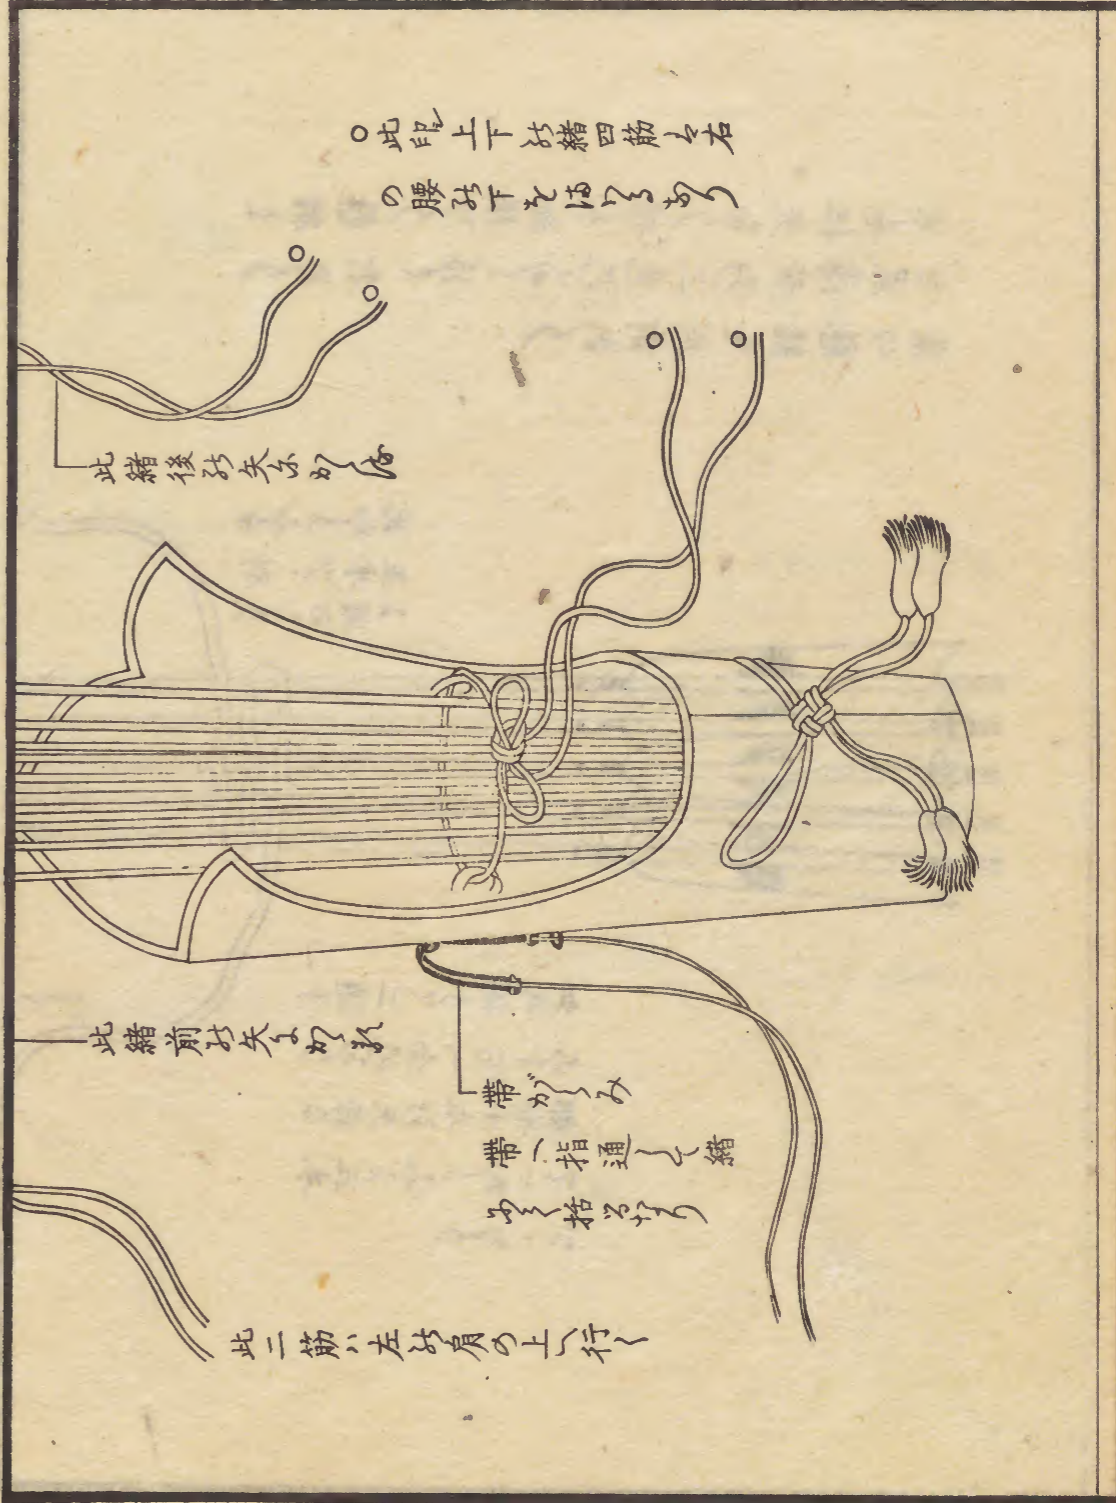 ○此印上下の緒四筋ハ右
の腰の下をまハるなり
此緒後の矢にかくる
此緒前の矢にかくる
帯がらみ
帯へ指通して緒
にて括るなり
此二筋ハ左の肩の上へ行く